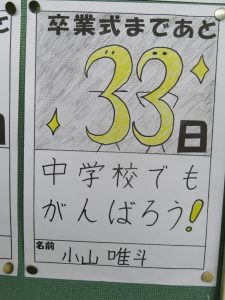 卒業式まであと
33日
中学校でも
がんばろう!
名前 小山 唯斗